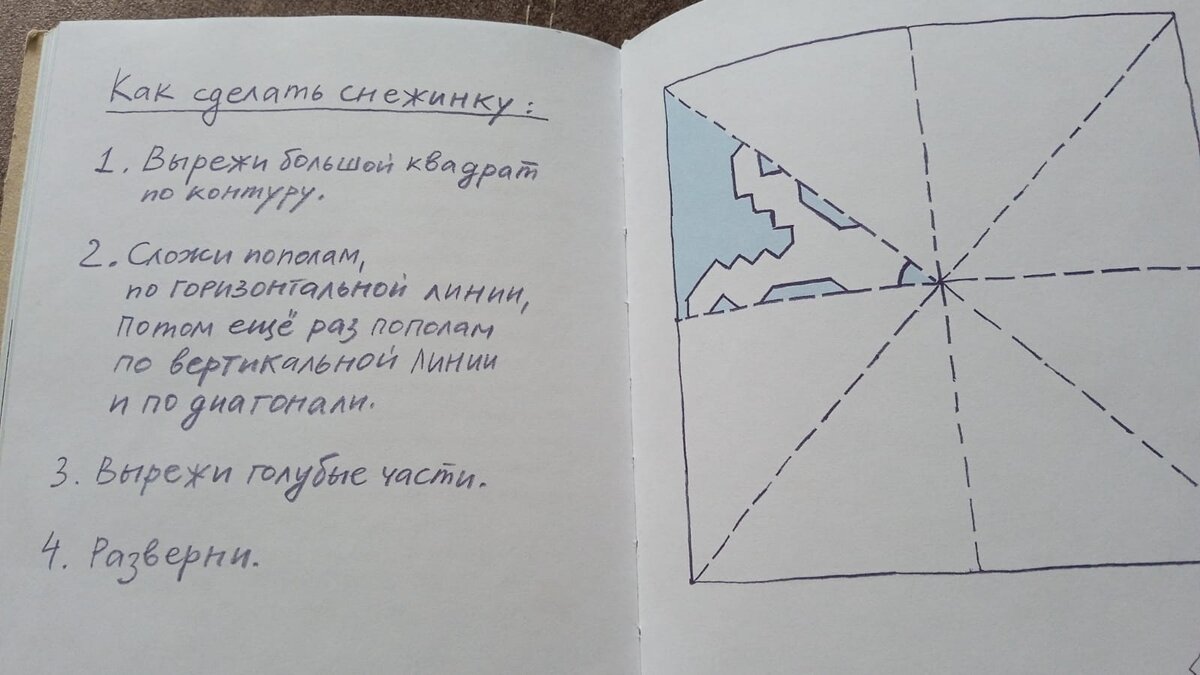 Как сделать снежинку:
1. Вырежи большой квадрат
по контуру.
2. Сложи пополам,
по горизонтальной линии,
потом ещё раз пополам
по вертикальной линии
и по диагонали.
3. Вырежи голубые части.
4. Разверни.